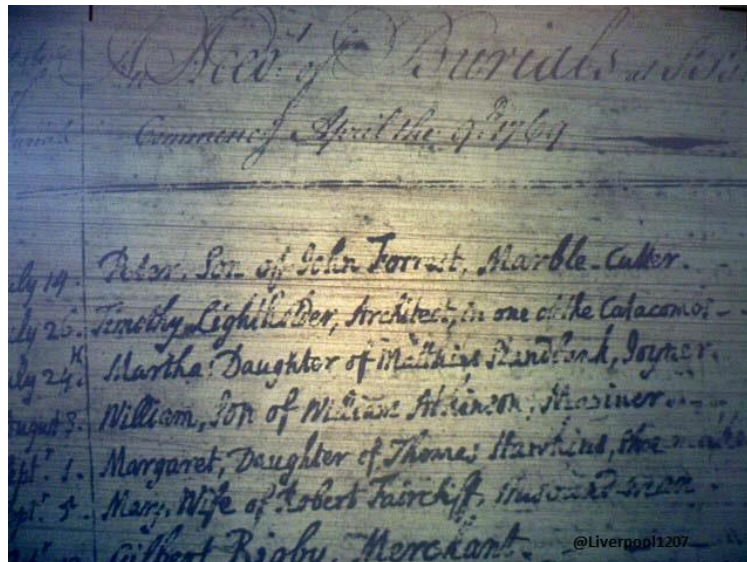 An Acco.t of Burials at
Commencg April the 9.th 1769
July 19. Peter, Son of John Forrest, Marble-Cutter.
July 26. Timothy Lightholder, Architect, in one of the Catacombs -
July 24th. Martha: Daughter of Matthias Standbank, Joyner.
August 8. William, Son of William Atkinson, Mariner
Sept.r 1. Margaret, Daughter of Thomas Hawkins,
Sept.r 5. Mary, Wife of Robert Faircliff, Husband-man
Gilbert Rigby, Merchant.
@Liverpool1207